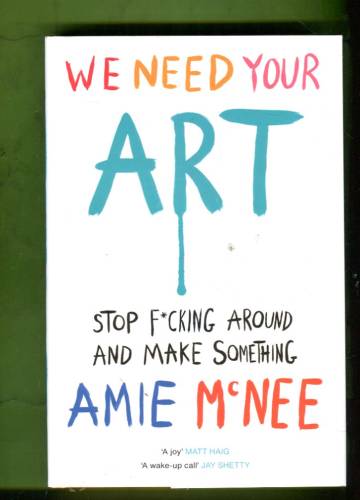 WE NEED YOUR
ART
STOP F*CKING AROUND
AND MAKE SOMETHING
AMIE McNEE
'A joy' MATT HAIG
'A wake-up call' JAY SHETTY